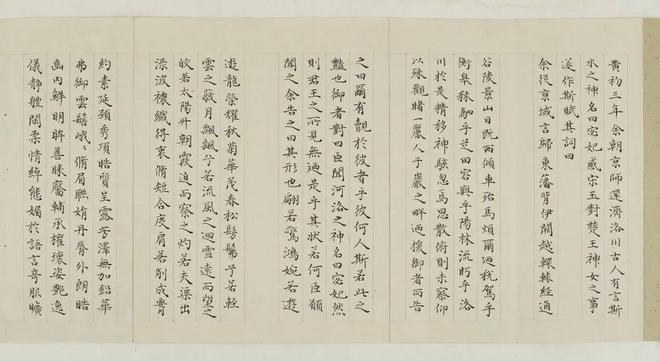 黄初三年余朝京師還濟洛川古人有言斯
水之神名曰宓妃感宋玉對楚王神女之事
遂作斯賦其詞曰
余從京域言歸東藩背伊闕越轘轅經通
谷陵景山日既西傾車殆馬煩爾迺稅駕乎
衡皋秣駟乎芝田容與乎陽林流眄乎洛
川於是精移神駭忽焉思散俯則未察仰
以殊觀睹一麗人于巖之畔迺援御者而告
之曰爾有覿於彼者乎彼何人斯若此之
豔也御者對曰臣聞河洛之神名曰宓妃然
則君王之所見無迺是乎其狀若何臣願
聞之余告之曰其形也翩若驚鴻婉若遊
遊龍榮耀秋菊華茂春松髣髴兮若輕
雲之蔽月飄飄兮若流風之迴雪遠而望之
皎若太陽升朝霞迫而察之灼若夫蕖出
淥波襛纖得衷脩短合度肩若削成要
約素延頸秀項皓質呈露芳澤無加鉛華
弗御雲髻峨〻脩眉聯娟丹脣外朗皓
齒內鮮明眸善睞靨輔承權瓌姿豔逸
儀靜體閑柔情綽態媚於語言奇服曠